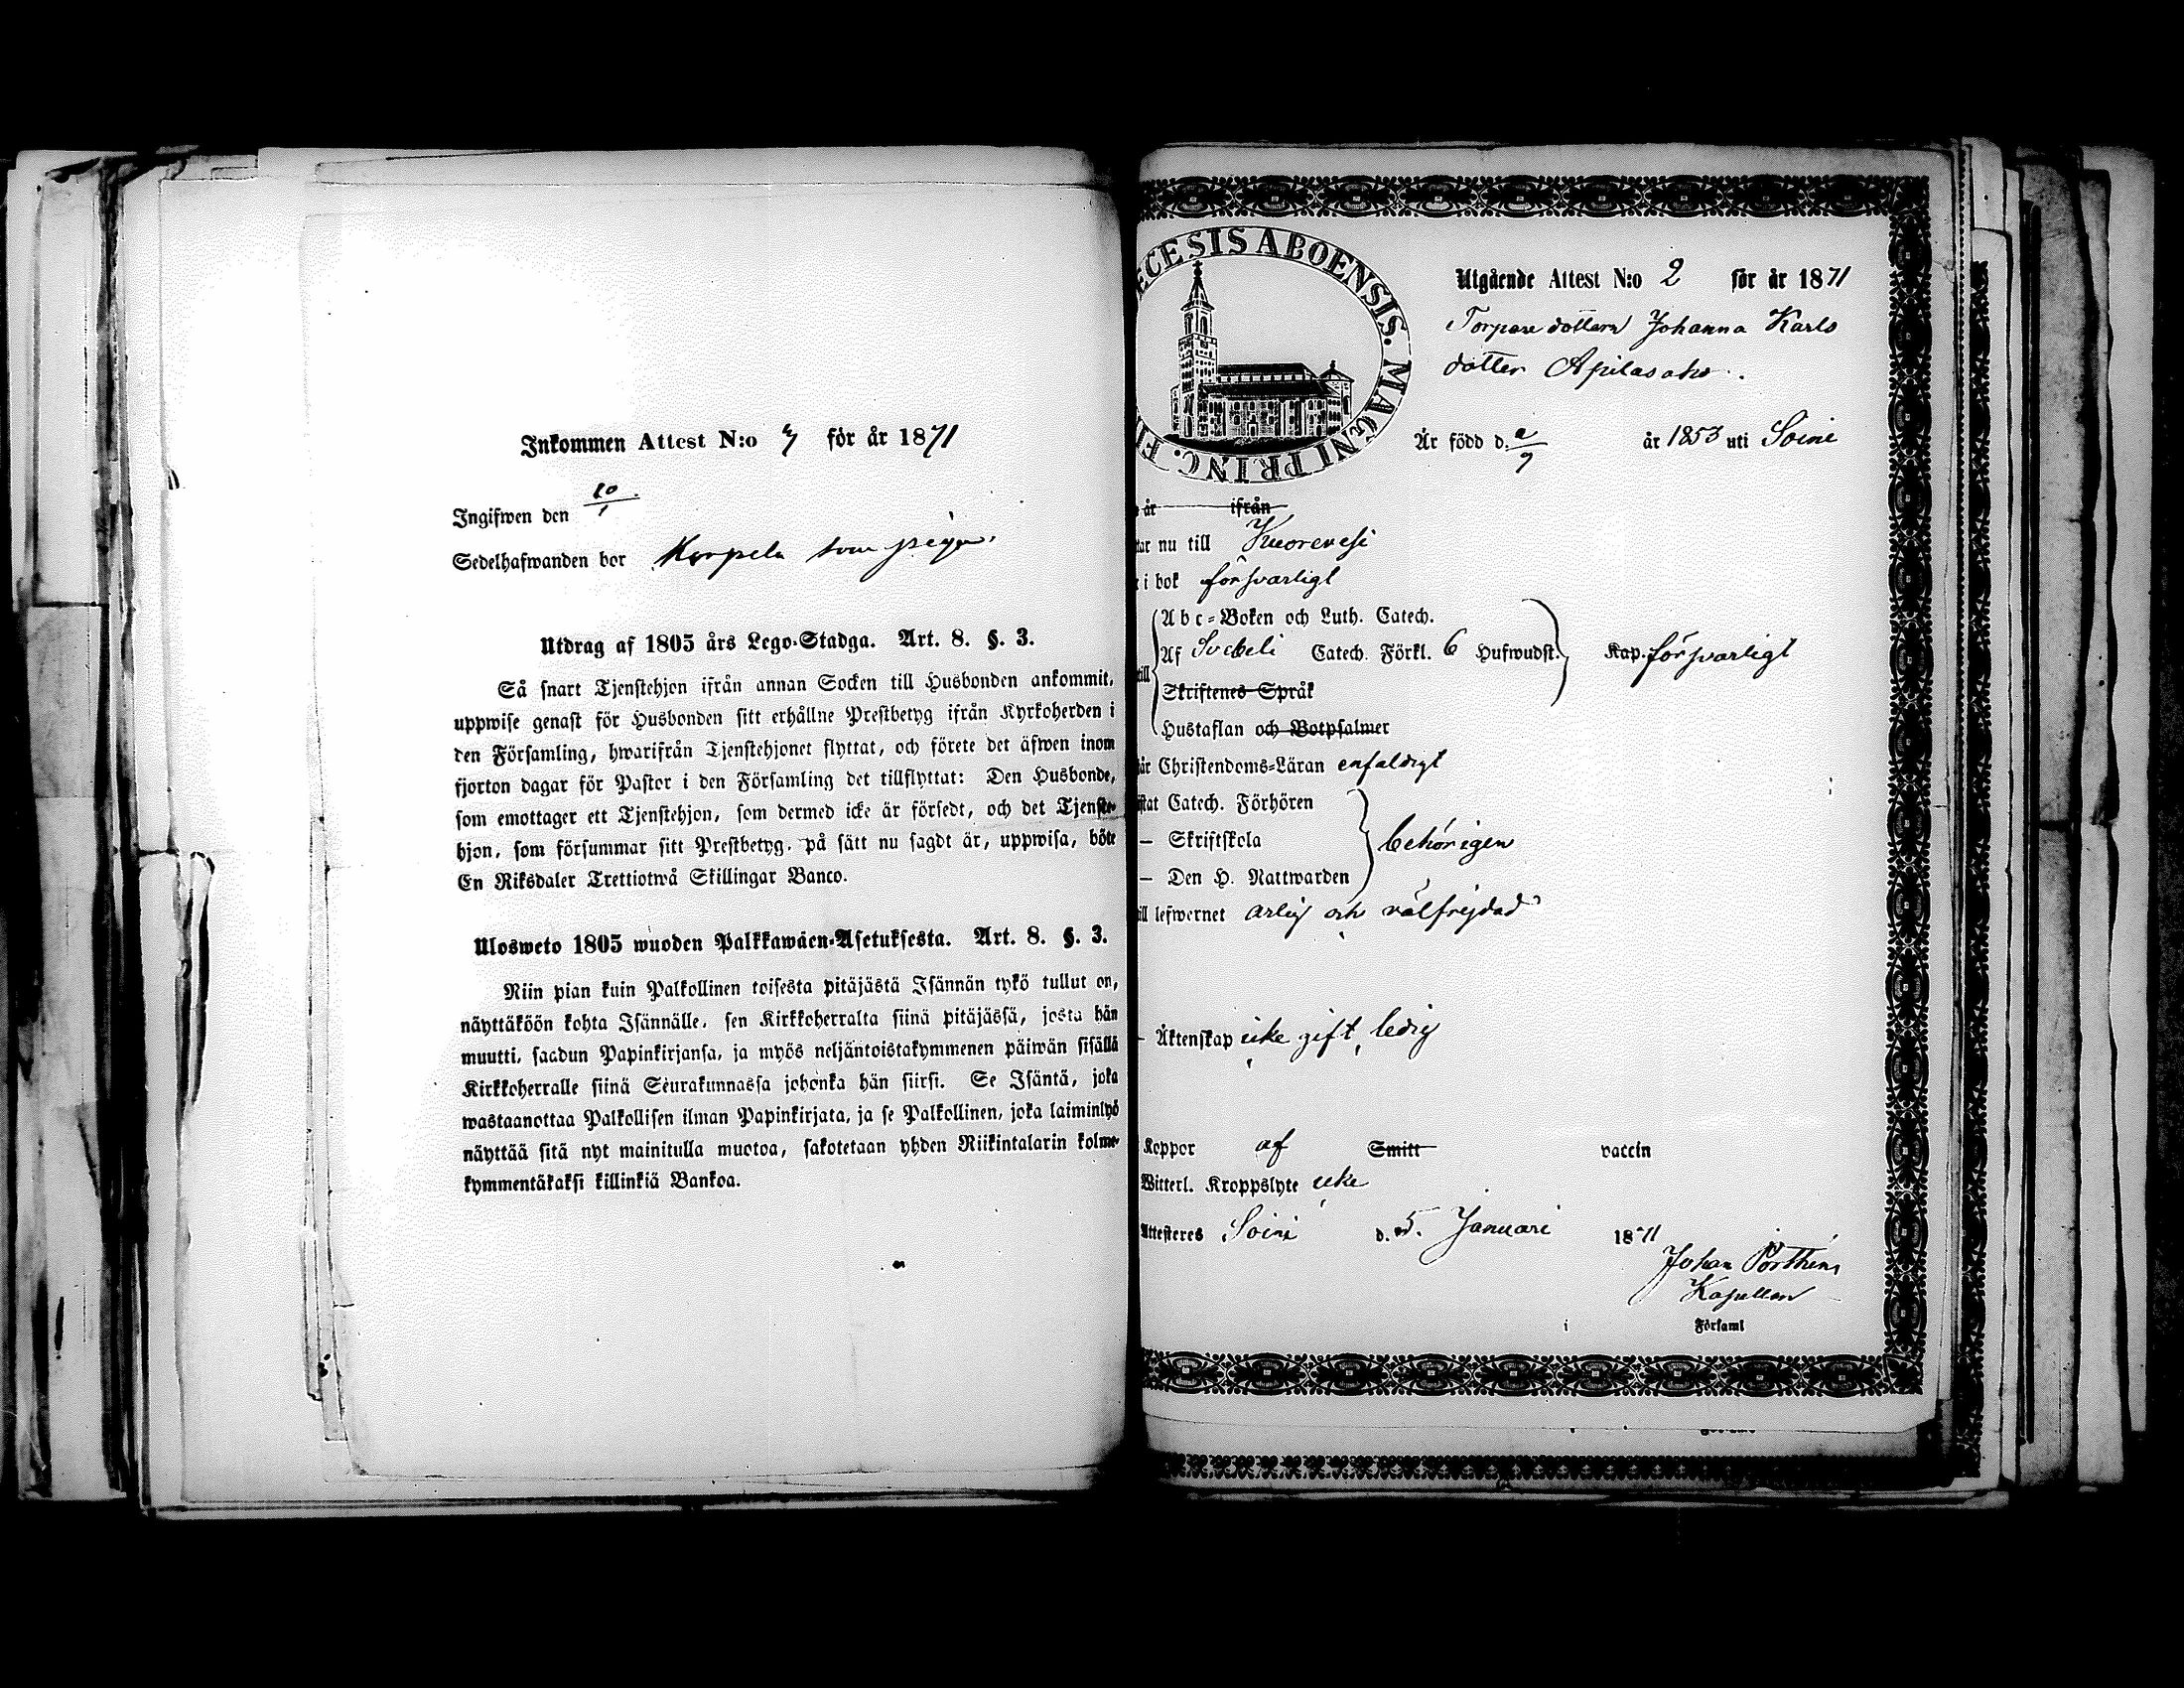 Inkommen Attest N:o 7 för år 1871
Ingifwen den 10/1
Sedelhafwanden bor Korpela som piga.
Utdrag af 1805 års Lego-Stadga. Art. 8. §. 3.
Så snart Tjenstehjon ifrån annan Socken till Husbonden ankommit,
uppwise genast för Husbonden sitt erhållne Prestbetyg ifrån Kyrkoherden i
den Församling, hwarifrån Tjenstehjonet flyttat, och förete det äfwen inom
fjorton dagar för Pastor i den Församling det tillflyttat: Den Husbonde,
som emottager ett Tjenstehjon, som dermed icke är försedt, och det Tjenste-
hjon, som försummar sitt Prestbetyg, på sätt nu sagdt är, uppwisa, böte
En Riksdaler Trettiotwå Skillingar Banco.
Ulosweto 1805 wuoden Palkkawäen-Asetuksesta. Art. 8. §. 3.
Niin pian kuin Palkollinen toisesta pitäjästä Isännän tykö tullut on,
näyttäköön kohta Isännälle, sen Kirkkoherralta siinä pitäjässä, josta hän
muutti, saadun Papinkirjansa, ja myös neljäntoistakymmenen päiwän sisällä
Kirkkoherralle siinä Seurakunnassa johonka hän siirsi. Se Isäntä, joka
wastaanottaa Palkollisen ilman Papinkirjata, ja se Palkollinen, joka laiminlyö
näyttää sitä nyt mainitulla muotoa, sakotetaan yhden Riikintalarin kolme-
kymmentäkaksi killinkiä Bankoa.
ECESIS ABOENSIS. MAGNI PRINC. FI
Utgående Attest N:o 2 för år 1871
Torpare dottern Johanna Karls
dotter Apilasaho.
Är född d. 2/7 år 1853 uti Soini
år ifrån
tar nu till Kuorevesi
i bok försvarligt
Abc-Boken och Luth. Catech.
till Af Svebeli Catech. Förkl. 6 Hufwudst. Kap. försvarligt
Skriftenes Språk
Hustaflan och Botpsalmer
år Christendoms-Läran enfaldigt
stat Catech. Förhören
— Skriftskola behörigen
— Den H. Nattwarden
ill lefwernet ärlig och välfrejdad
— Äktenskap icke gift, ledig
Koppor af Smitt vaccin
Witterl. Kroppslyte icke
Attesteres Soini d. 5. Januari 1871
Johan Pörthén
Kapellan
i Församl